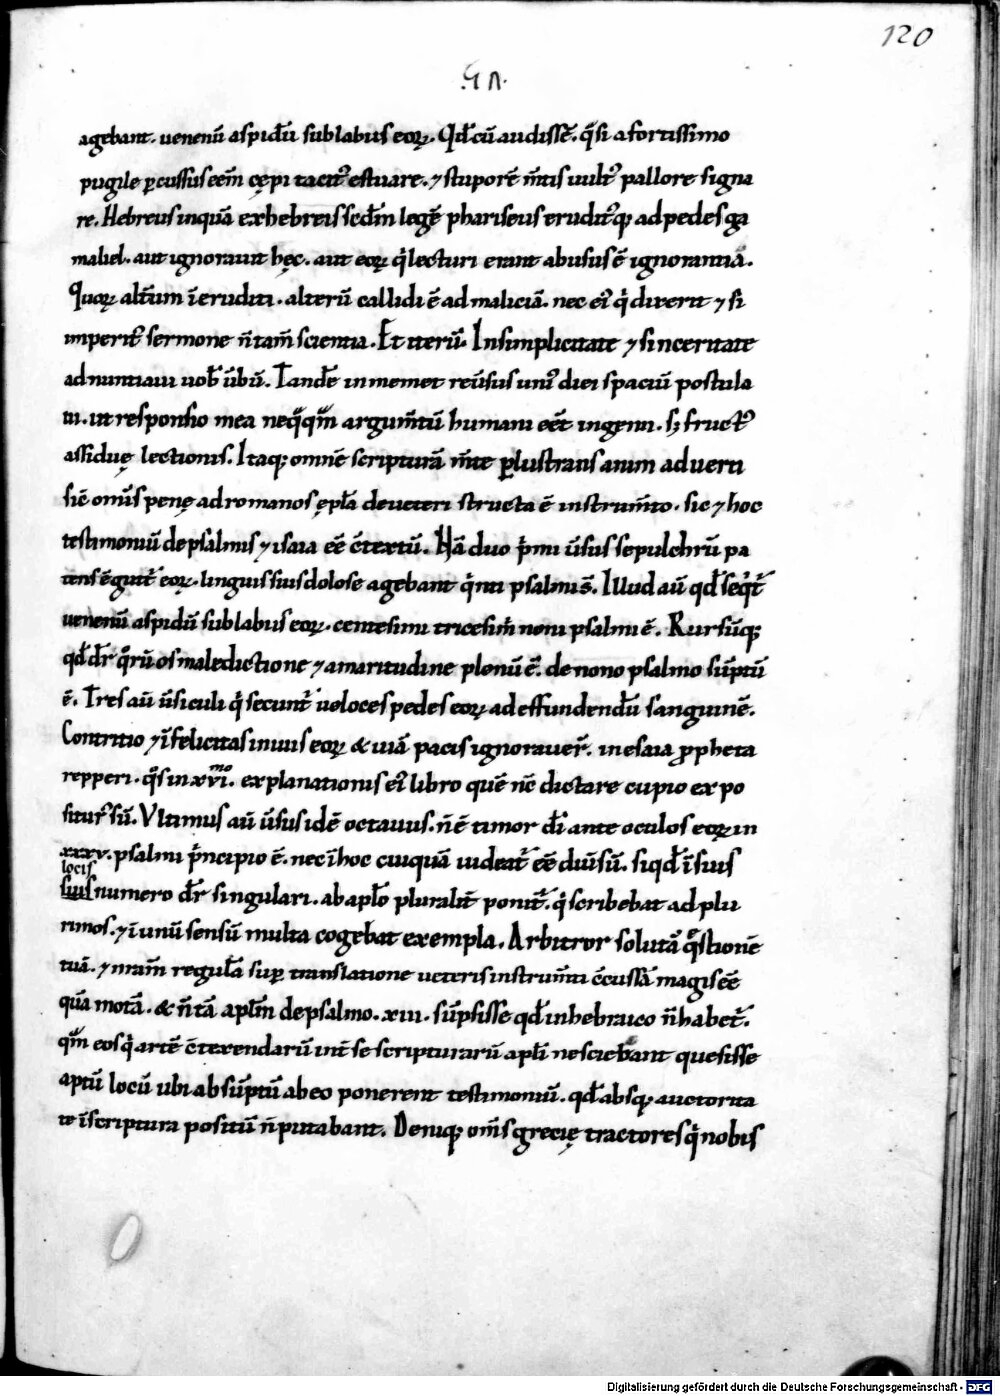 120
agebant. uenenū aspidū sub labiis eoꝝ. Qđ cū audissē. q̄si a fortissimo
pugile ꝑcussus eēm cępi tacit᷒ estuare. ⁊ stuporē m̄tis uult᷒ pallore signa
re. Hebreus inquā ex hebreis scdm̄ legē phariseus erudit᷒q; ad pedes ga
maliel. aut ignorauit hęc. aut eoꝝ qͥ lecturi erant abusus ē ignorantia.
Quoꝝ alt̄um īeruditi. alterū callidi ē ad maliciā. nec ei᷒ qͥ dixerit ⁊ si
imperit᷒ sermone n̄ tam̄ scientia. Et iterū. In simplicitate ⁊ sinceritate
adnuntiaui uob̄ ūbū. Tandē in memet reūsus uni᷒ diei spaciū postula
ui. ut responsio mea neq̄q̄m argum̄tū humani eēt ingenii. s; fruct᷒
assiduę lectionis. Itaq; omnē scripturā m̄te ꝑlustrans anim aduerti
sic̄ om̄s penę ad romanos ępl̄a de ueteri structa ē instrum̄to. sic ⁊ hoc
testimoniū de psalmis ⁊ isaia eē c̄textū. Nā duo p̄mi ūsus sepulchrū pa
tens ē gutt̄ eoꝝ. linguis suis dolose agebant qͥnti psalmi s̄. Illud aū qđ seqͥt̄
uenenū aspidū sub labiis eoꝝ. centesimi tricesim̄ noni psalmi ē. Rursūq;
qđ dr̄ q̄rū os maledictione ⁊ amaritudine plenū ē. de nono psalmo sūptū
ē. Tres aū ūsiculi qͥ secunt̄ ueloces pedes eoꝝ ad effundendū sanguinē.
Contritio ⁊ īfelicitas in uiis eoꝝ & uiā pacis ignorauer̄. in esaia ꝓpheta
repperi. q̄s in xvi.mo explanationis ei᷒ libro quē nc̄ dictare cupio expo
situr᷒ sū. Vltimus aū ūsus idē octauus. n̄ ē timor dī ante oculos eoꝝ in
xxxv. psalmi p̄ncipio ē. nec ī hoc cuiquā uideat̄ eē diūsū. si qđ ī suis
locis
suis numero dr̄ singulari. ab apl̄o pluralit̄ ponit̄. qͥ scribebat ad plu
rimos. ⁊ ī unū sensū multa cogebat exempla. Arbitror solutā q̄stionē
tuā. ⁊ nr̄am regulā suꝑ translatione ueteris instrum̄ti c̄cussā magis eē
quā motā. & n̄ tā aplm̄ de psalmo. xiii. sūpsisse qđ in hebraico n̄ habet̄.
qm̄ eos qͥ artē c̄texendarū int̄ se scripturarū apl̄i nesciebant quesisse
aptū locū ubi absūptū ab eo ponerent testimoniū. qđ absq; auctorita
te ī scriptura positū n̄ putabant. Deniq; om̄s grecię tractores qͥ nobis
Digitalisierung gefördert durch die Deutsche Forschungsgemeinschaft - DFG